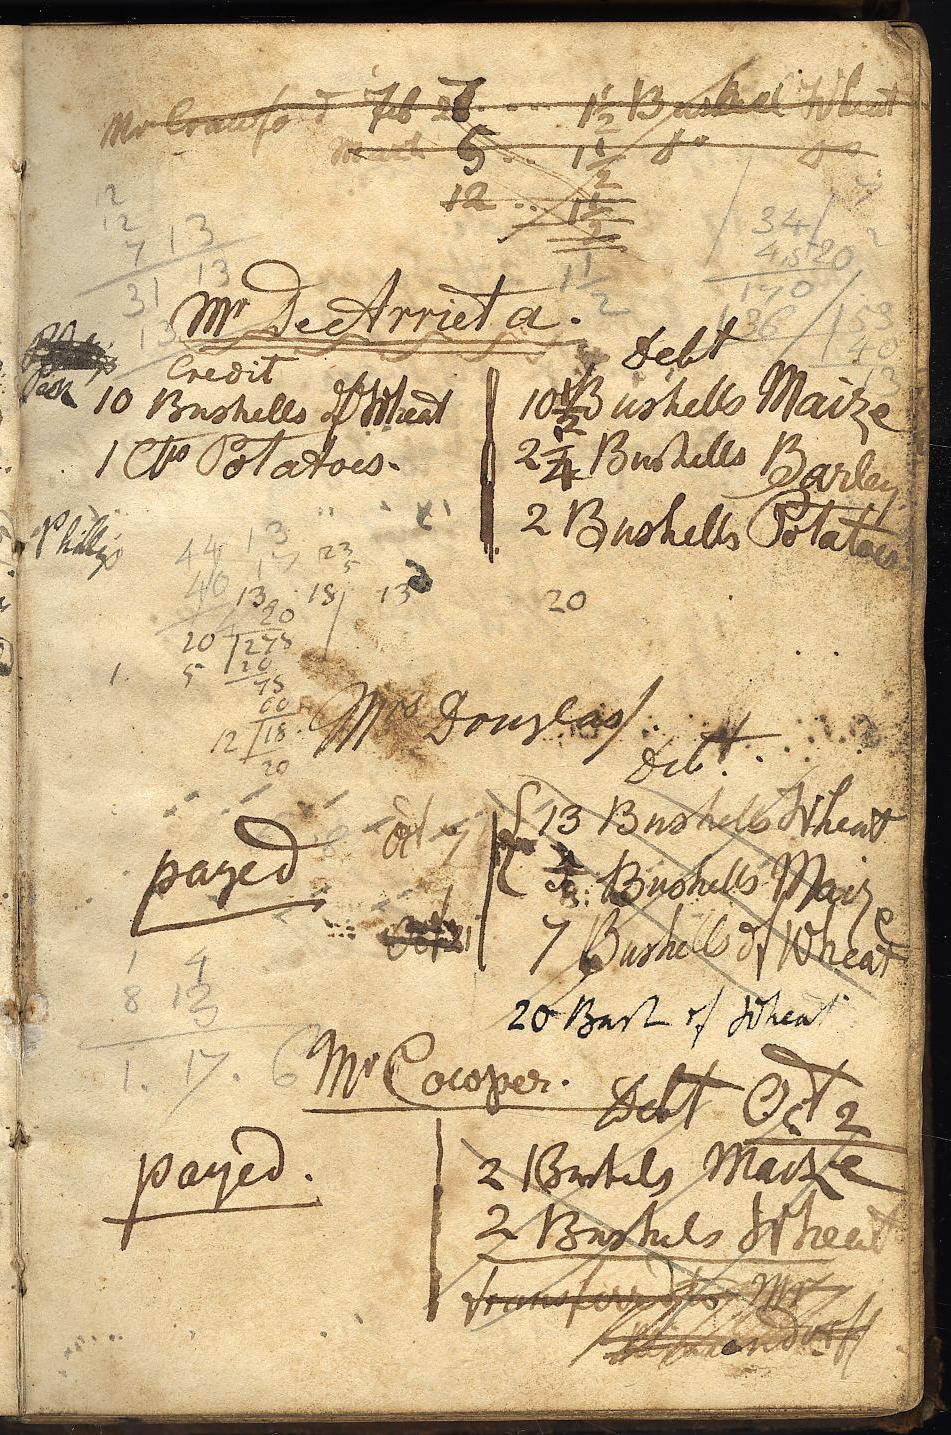 Mr Crawford Feb 28 .... 1 1/2 Bushel Wheat
March 5 .. 1 1/2 do do
12 .. 1 1/2
1 1/2
12
12
7 13
31 13
13
34
4.5 20
170
136
153
40
13
Mr De Arrieta.
Credit
Debt
10 Bushells of Wheat
10 1/2 Bushells Maize
1 Cto Potatoes.
2 1/4 Bushells Barley
2 Bushells Potatoes
Phillips
44 13
40 13 18 13
20
20 275
5 20
75
60
12 18
20
20
Mrs Douglas
Debt.
payed
Oct 7
13 Bushells Wheat
Bushells Maize
Oct 21
7 Bushells of Wheat
20 Bush of Wheat
1 4
8 13
1. 17. 6
Mr Cooper.
Debt Oct 2
payed.
2 Bushels Maize
2 Bushels Wheat
transferred to Mr